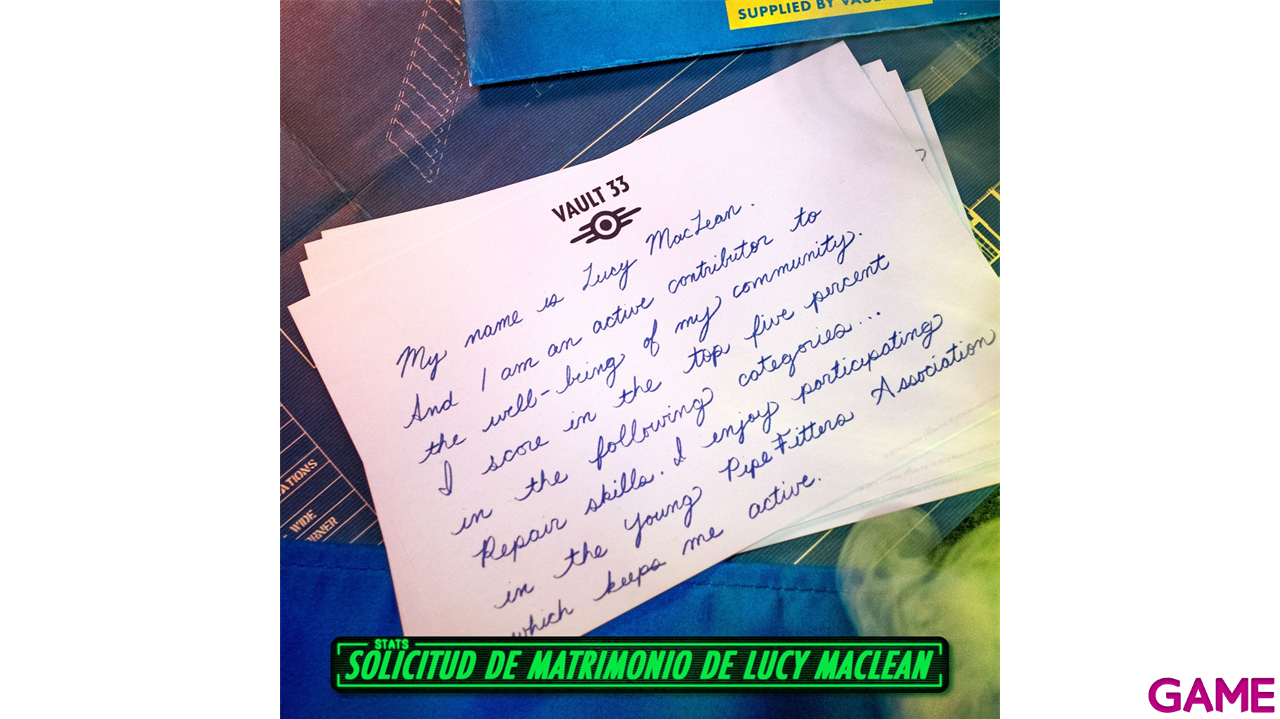 SUPPLIED BY
VAULT 33
My name is Lucy MacLean.
And I am an active contributor to
the well-being of my community.
I score in the top five percent
in the following categories...
Repair skills. I enjoy participating
in the young Pipe Fitters Association
which keeps me active.
WIDE
STATS
SOLICITUD DE MATRIMONIO DE LUCY MACLEAN
GAME